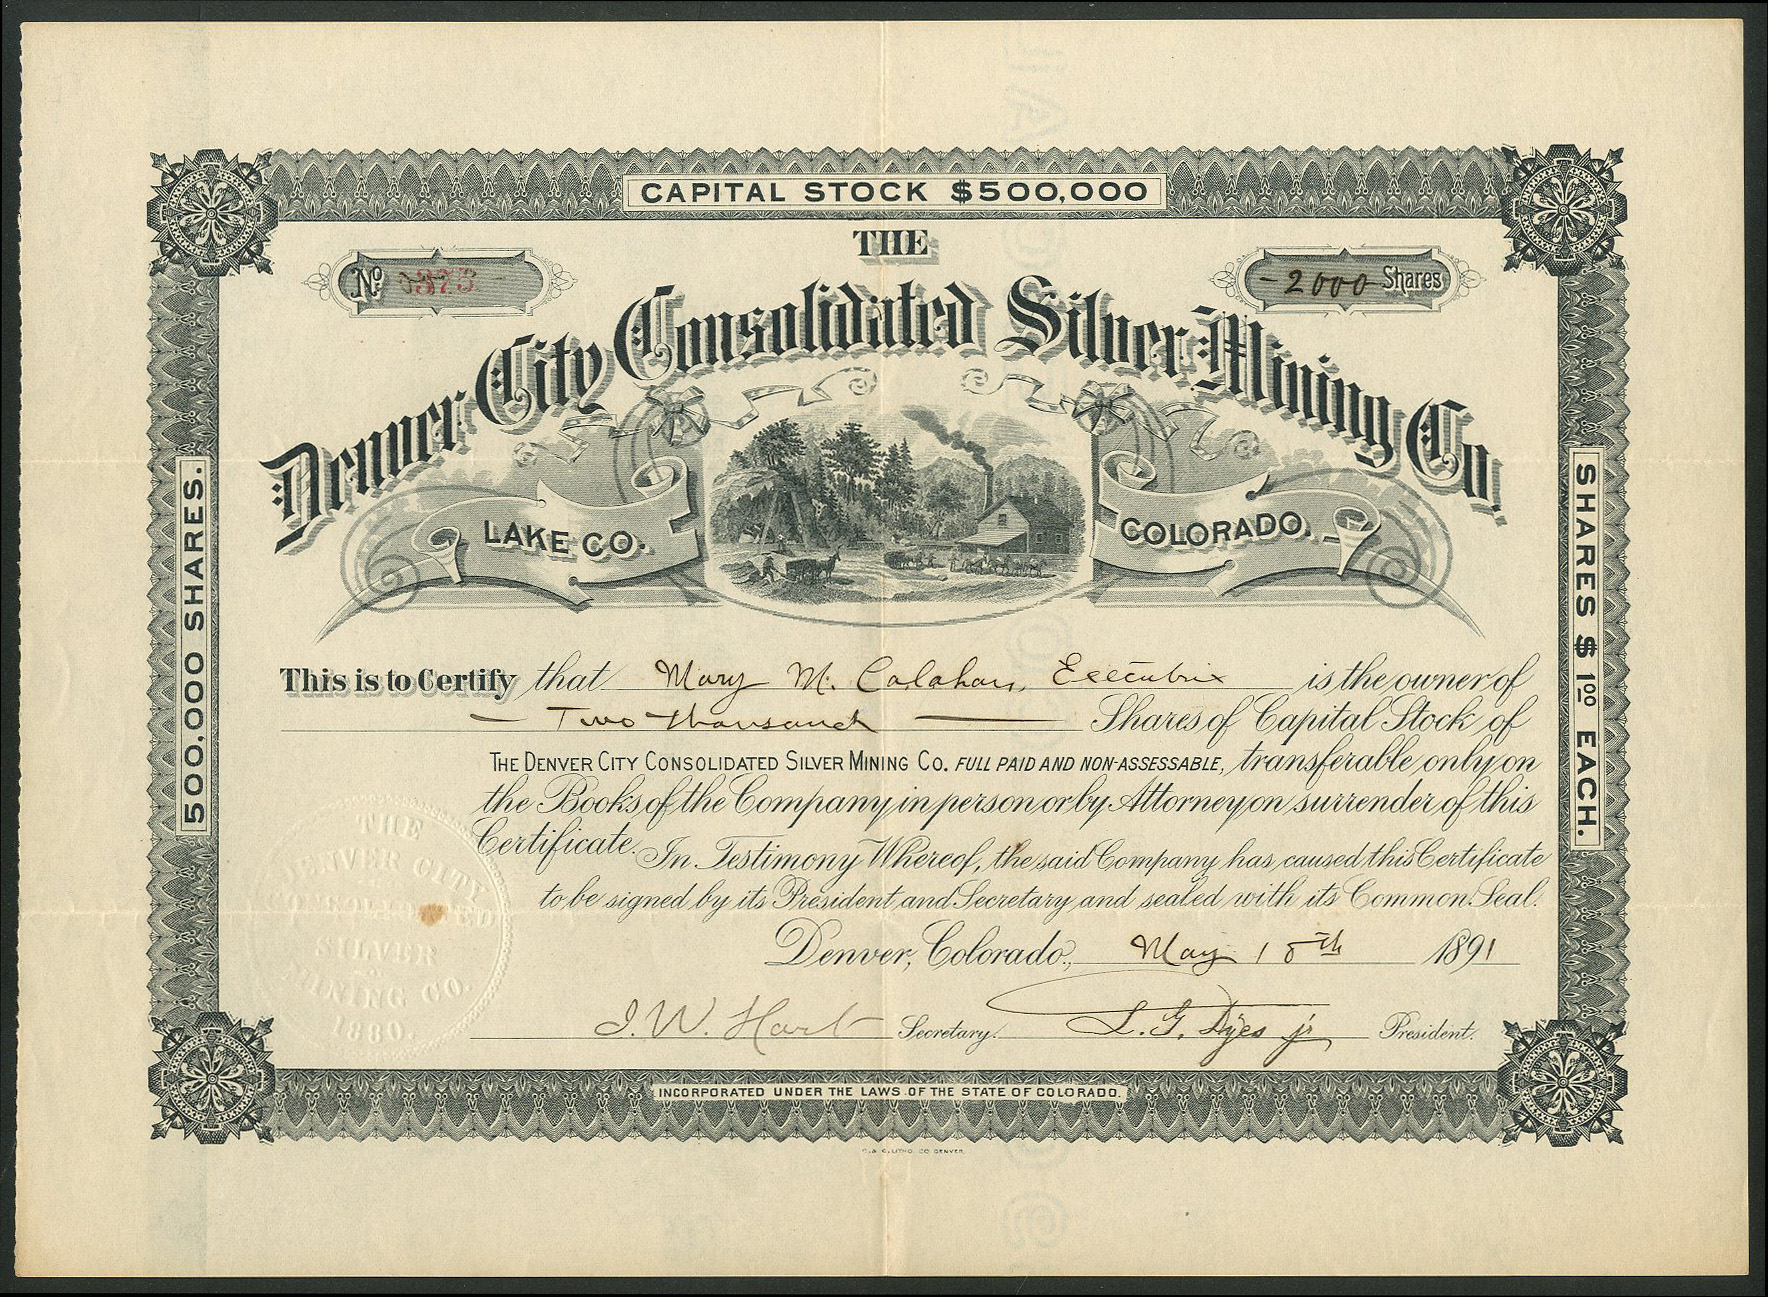 CAPITAL STOCK $500,000
THE
No 373
- 2000 Shares
Denver City Consolidated Silver Mining Co.
LAKE CO.
COLORADO.
500.000 SHARES.
SHARES $1.00 EACH.
This is to Certify that Mary M. Calahan, Executrix is the owner of
— Two thousand — Shares of Capital Stock of
THE DENVER CITY CONSOLIDATED SILVER MINING CO. FULL PAID AND NON-ASSESSABLE, transferable only on
the Books of the Company in person or by Attorney on surrender of this
Certificate. In Testimony Whereof, the said Company has caused this Certificate
to be signed by its President and Secretary and sealed with its Common Seal.
Denver, Colorado, May 18th 1891
THE
DENVER CITY
CONSOLIDATED
SILVER
MINING CO.
1880.
J. W. Hart Secretary. L. G. Dyes jr President.
INCORPORATED UNDER THE LAWS OF THE STATE OF COLORADO.
LITHO. CO DENVER.